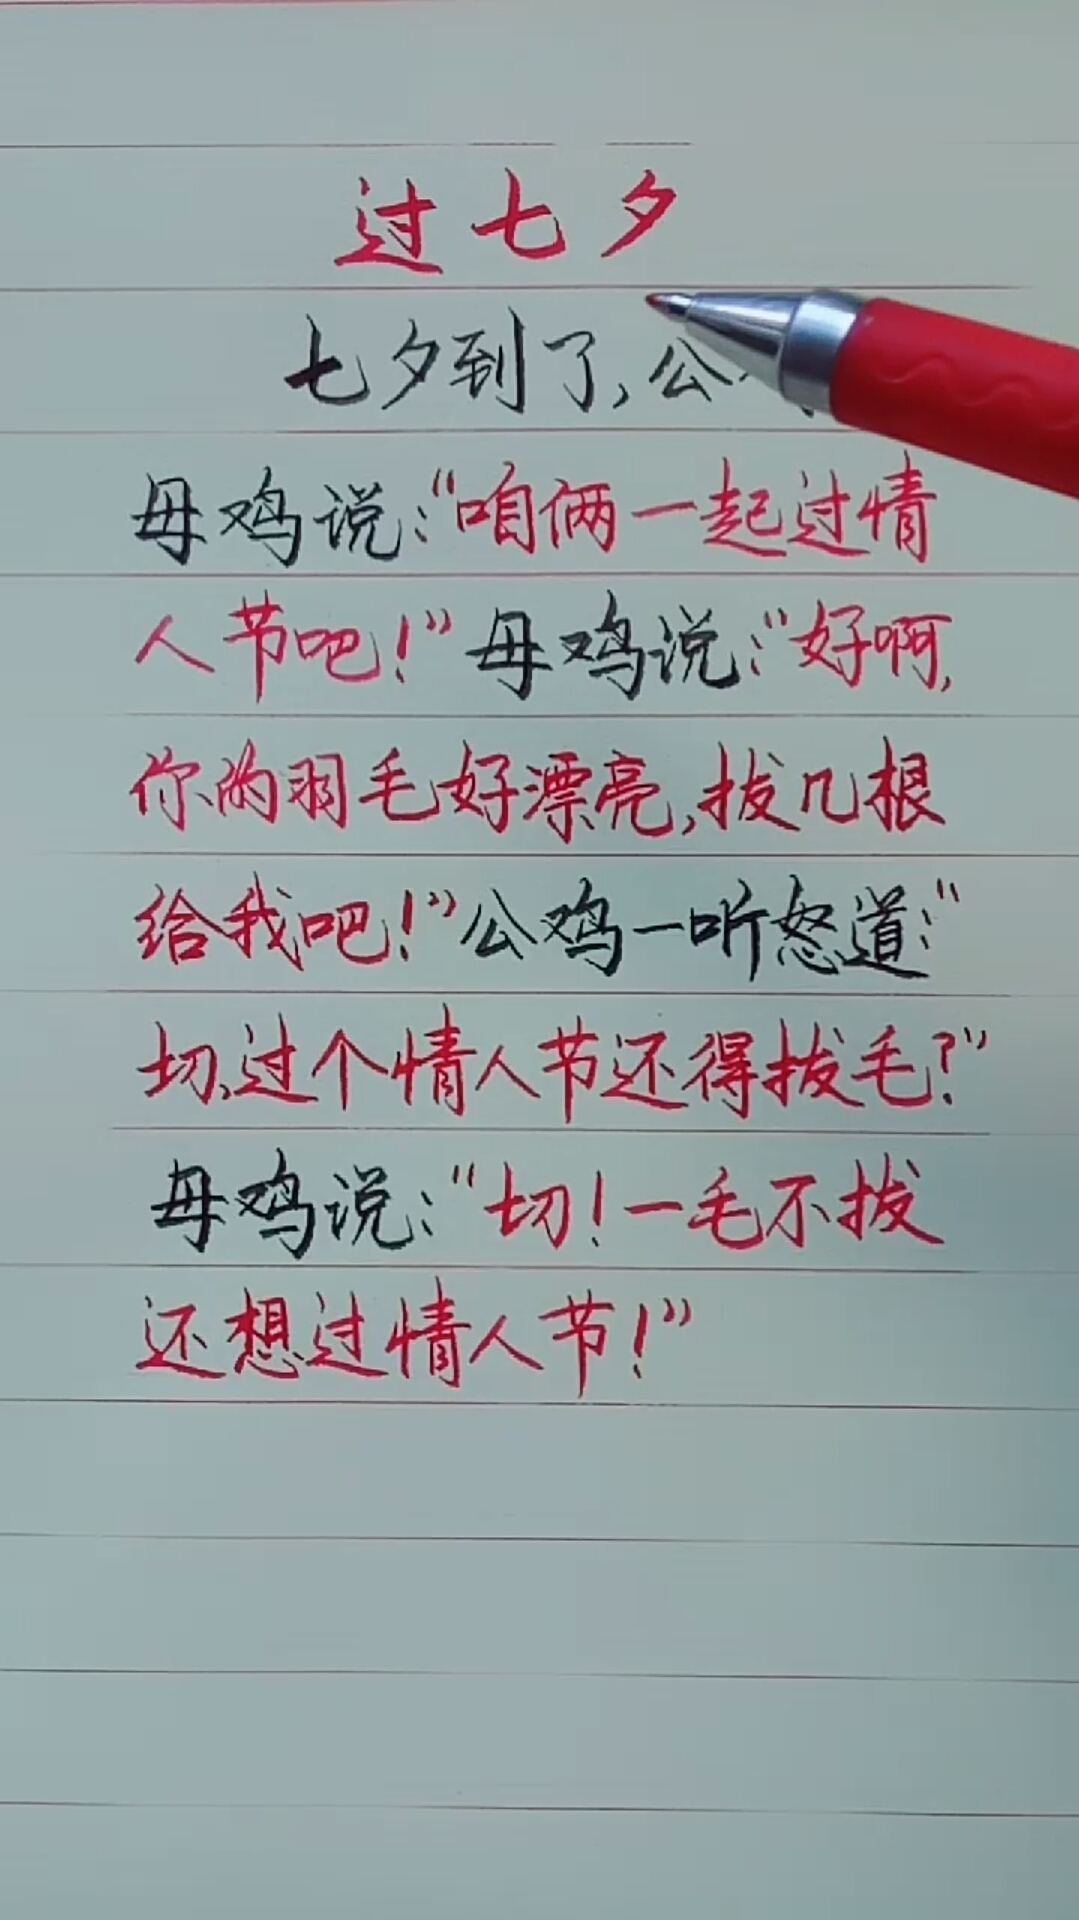 过七夕
七夕到了,公
母鸡说:“咱俩一起过情
人节吧!”母鸡说:“好啊,
你的羽毛好漂亮,拔几根
给我吧!”公鸡一听怒道:“
切,过个情人节还得拔毛?”
母鸡说:“切!一毛不拔
还想过情人节!”